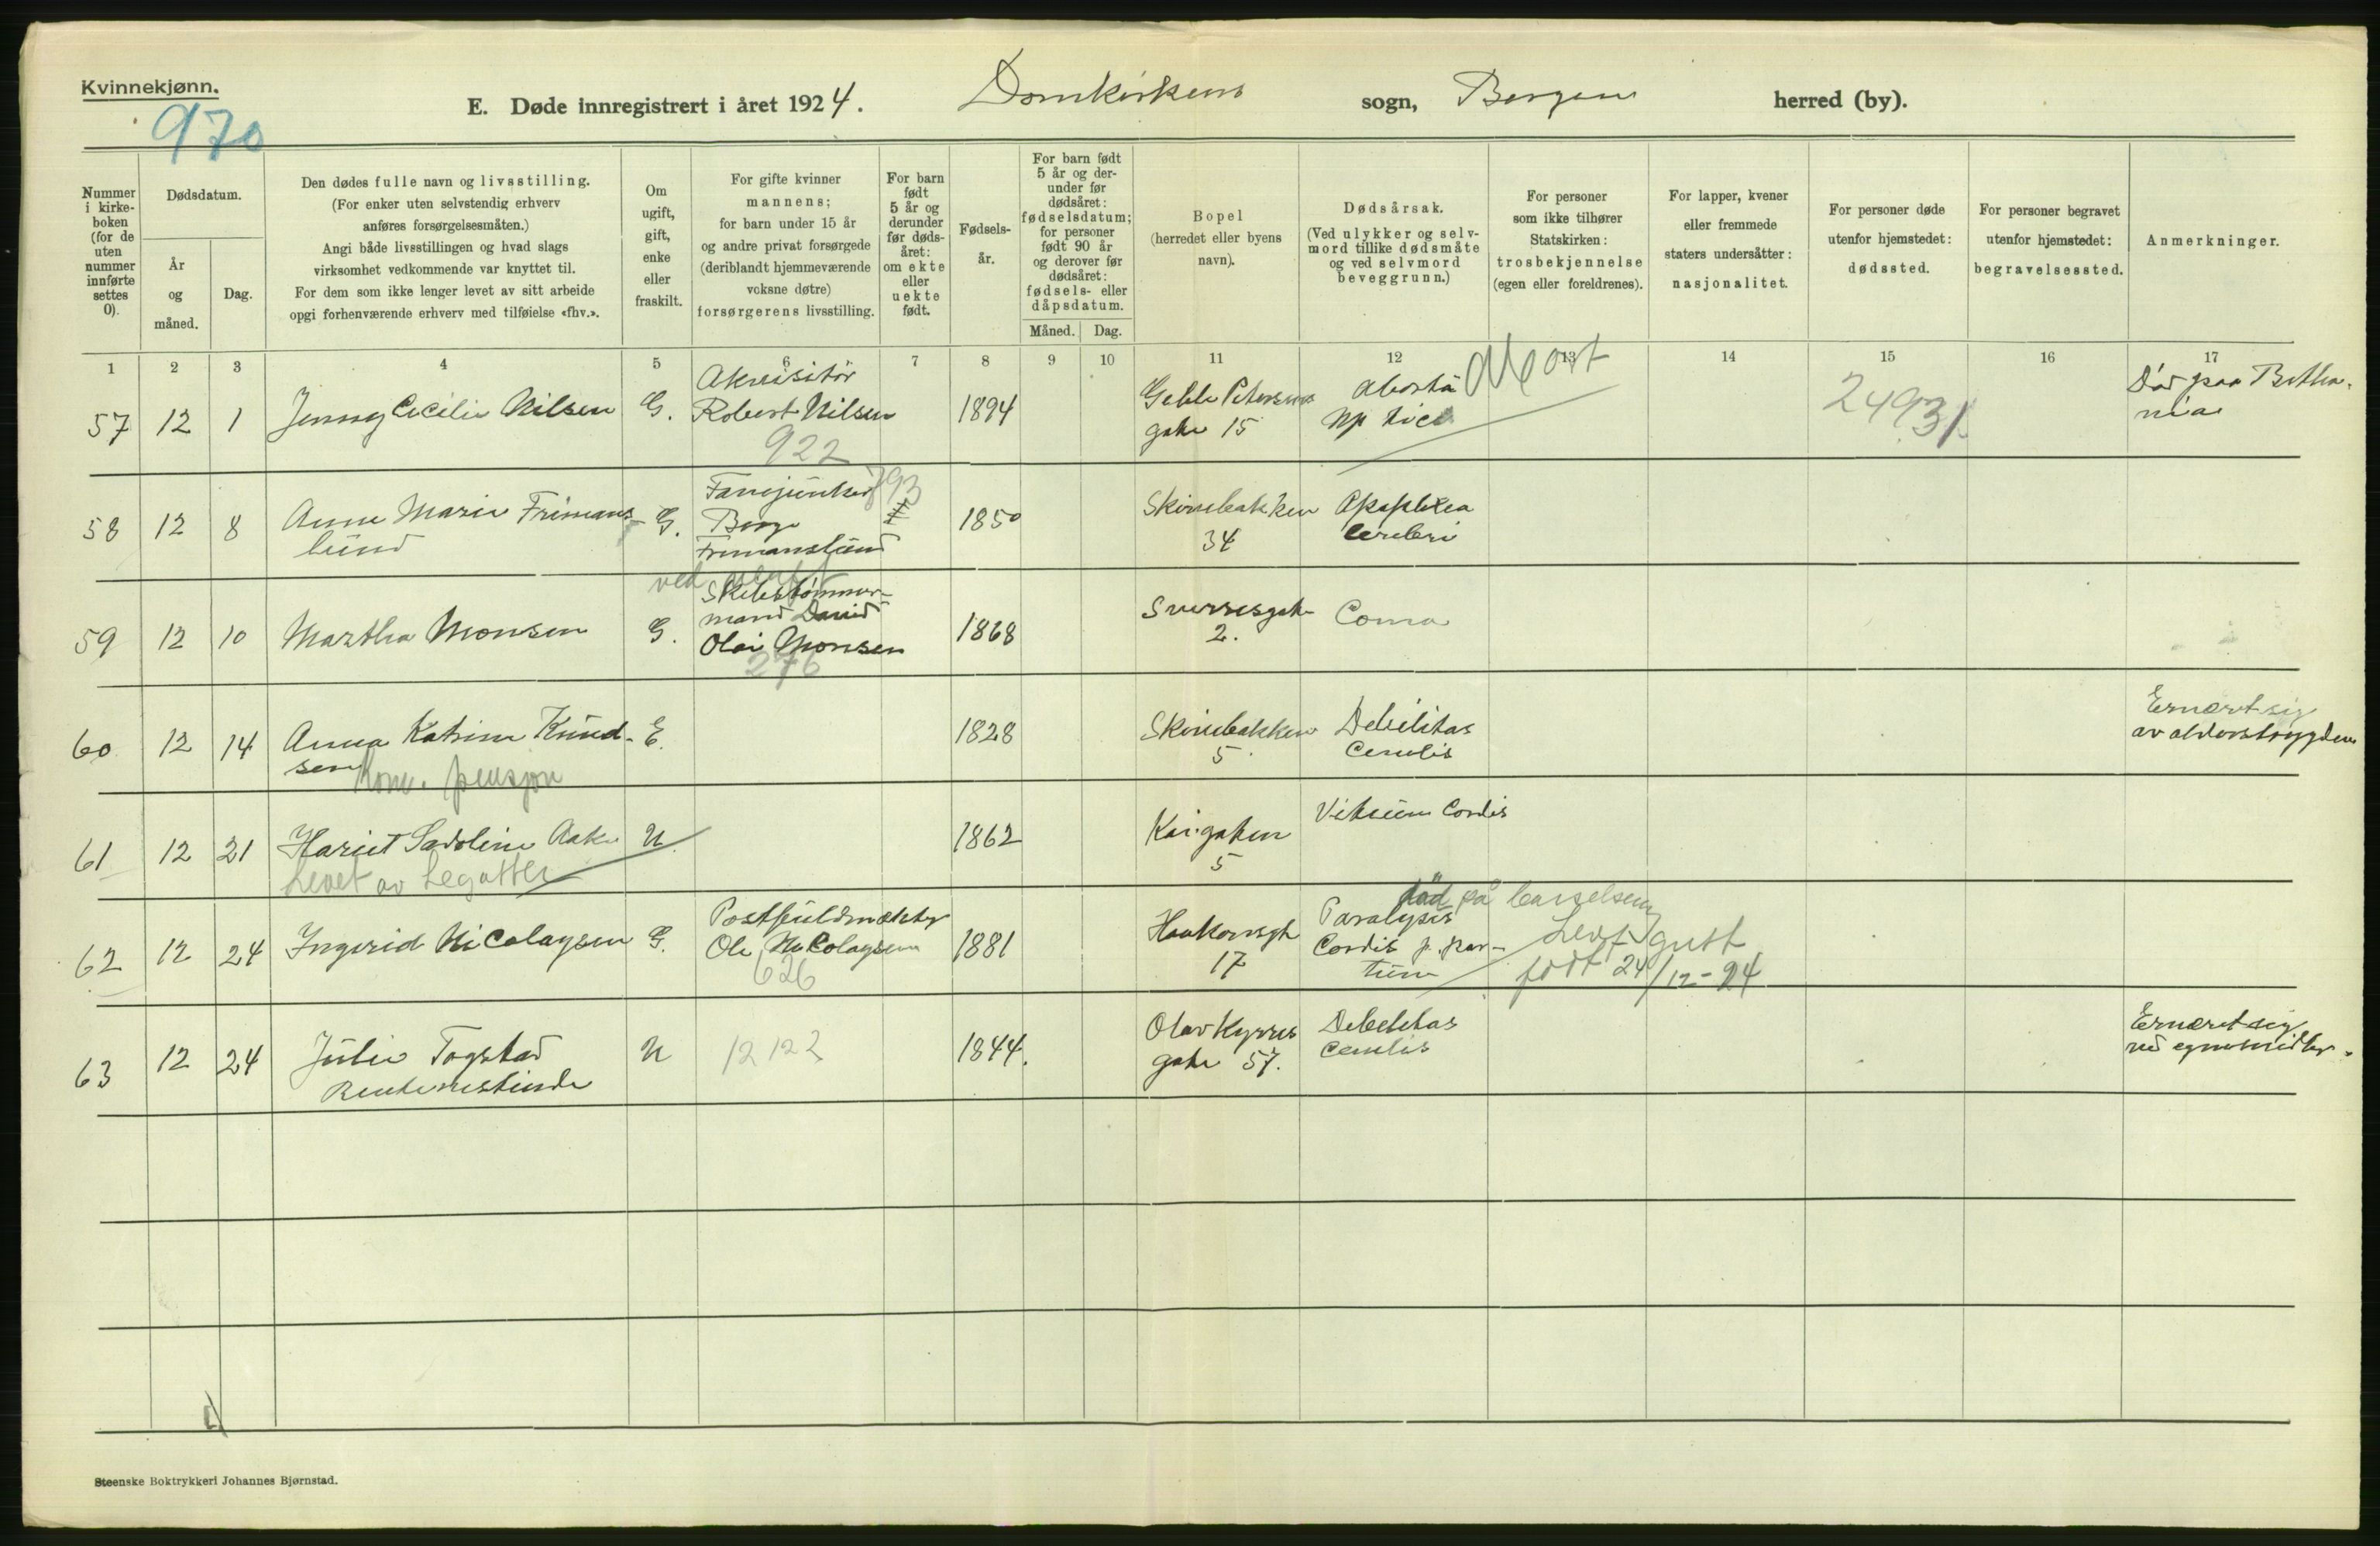 Kvinnekjønn.
970
E. Døde innregistrert i året 1924. Domkirkens sogn, Bergens herred (by).
Nummer i kirke-boken (for de uten nummer innførte settes 0).
Dødsdatum.
År og måned.
Dag.
Den dødes fulle navn og livsstilling.
(For enker uten selvstendig erhverv
anføres forsørgelsesmåten.)
Angi både livsstillingen og hvad slags
virksomhet vedkommende var knyttet til.
For dem som ikke lenger levet av sitt arbeide
opgi forhenværende erhverv med tilføielse «fhv.».
Om
ugift,
gift,
enke
eller
fraskilt.
For gifte kvinner
mannens;
for barn under 15 år
og andre privat forsørgede
(deriblandt hjemmeværende
voksne døtre)
forsørgerens livsstilling.
For barn
født
5 år og
derunder
før døds-
året:
om ekte
eller
uekte
født.
Fødsels-
år.
For barn født
5 år og der-
under før
dødsåret:
fødselsdatum;
for personer
født 90 år
og derover før
dødsåret:
fødsels- eller
dåpsdatum.
Måned. Dag.
Bopel
(herredet eller byens
navn).
Dødsårsak.
(Ved ulykker og selv-
mord tillike dødsmåte
og ved selvmord
beveggrunn.)
For personer
som ikke tilhører
Statskirken:
trosbekjennelse
(egen eller foreldrenes).
For lapper, kvener
eller fremmede
staters undersåtter:
nasjonalitet.
For personer døde
utenfor hjemstedet:
dødssted.
For personer begravet
utenfor hjemstedet:
begravelsessted.
Anmerkninger.
1 2 3 4 5 6 7 8 9 10 11 12 13 14 15 16 17
57 12 1 Jenny Cecilie Nilsen G. Akvisitör
Robert Nilsen
922
1894 Gebble Petersens
gate 15 Abort
24931
Död paa Betha-
nia
58 12 8 Anne Marie Frimans-
lund G. Fanejunker
793
Berge
Frimanslund
1850 Skivebakken
34 Apoplexia
cerebri
59 12 10 Martha Monsen G. Skibstömmer-
mand David
Olai Monsen
276
1868 Sverresgate
2. Coma
60 12 14 Anna Katrine Knud-
sen
Kom. pensjon
E. 1828 Skivebakken
5 Debilitas
Cenilis
Ernæret sig
av alderstrygden
61 12 21 Hariet Sadolin Aake U.
Levet av Legatter
1862 Kaigaten
5 Vitium Cordis
62 12 24 Ingerid Nicolaysen G. Postfuldmektig
Ole Nicolaysen
626
1881 Haakonsgt
17 Paralysis
Cordis p. par-
tum
död på barselseng
Lev. gutt
født 24/12-24
63 12 24 Julie Togstad
Rentenistinde
U 12122 1844. Olav Kyrres
gate 57. Debilitas
Cenilis
Ernæret sig
ved egne midler.
Steenske Boktrykkeri Johannes Bjørnstad.